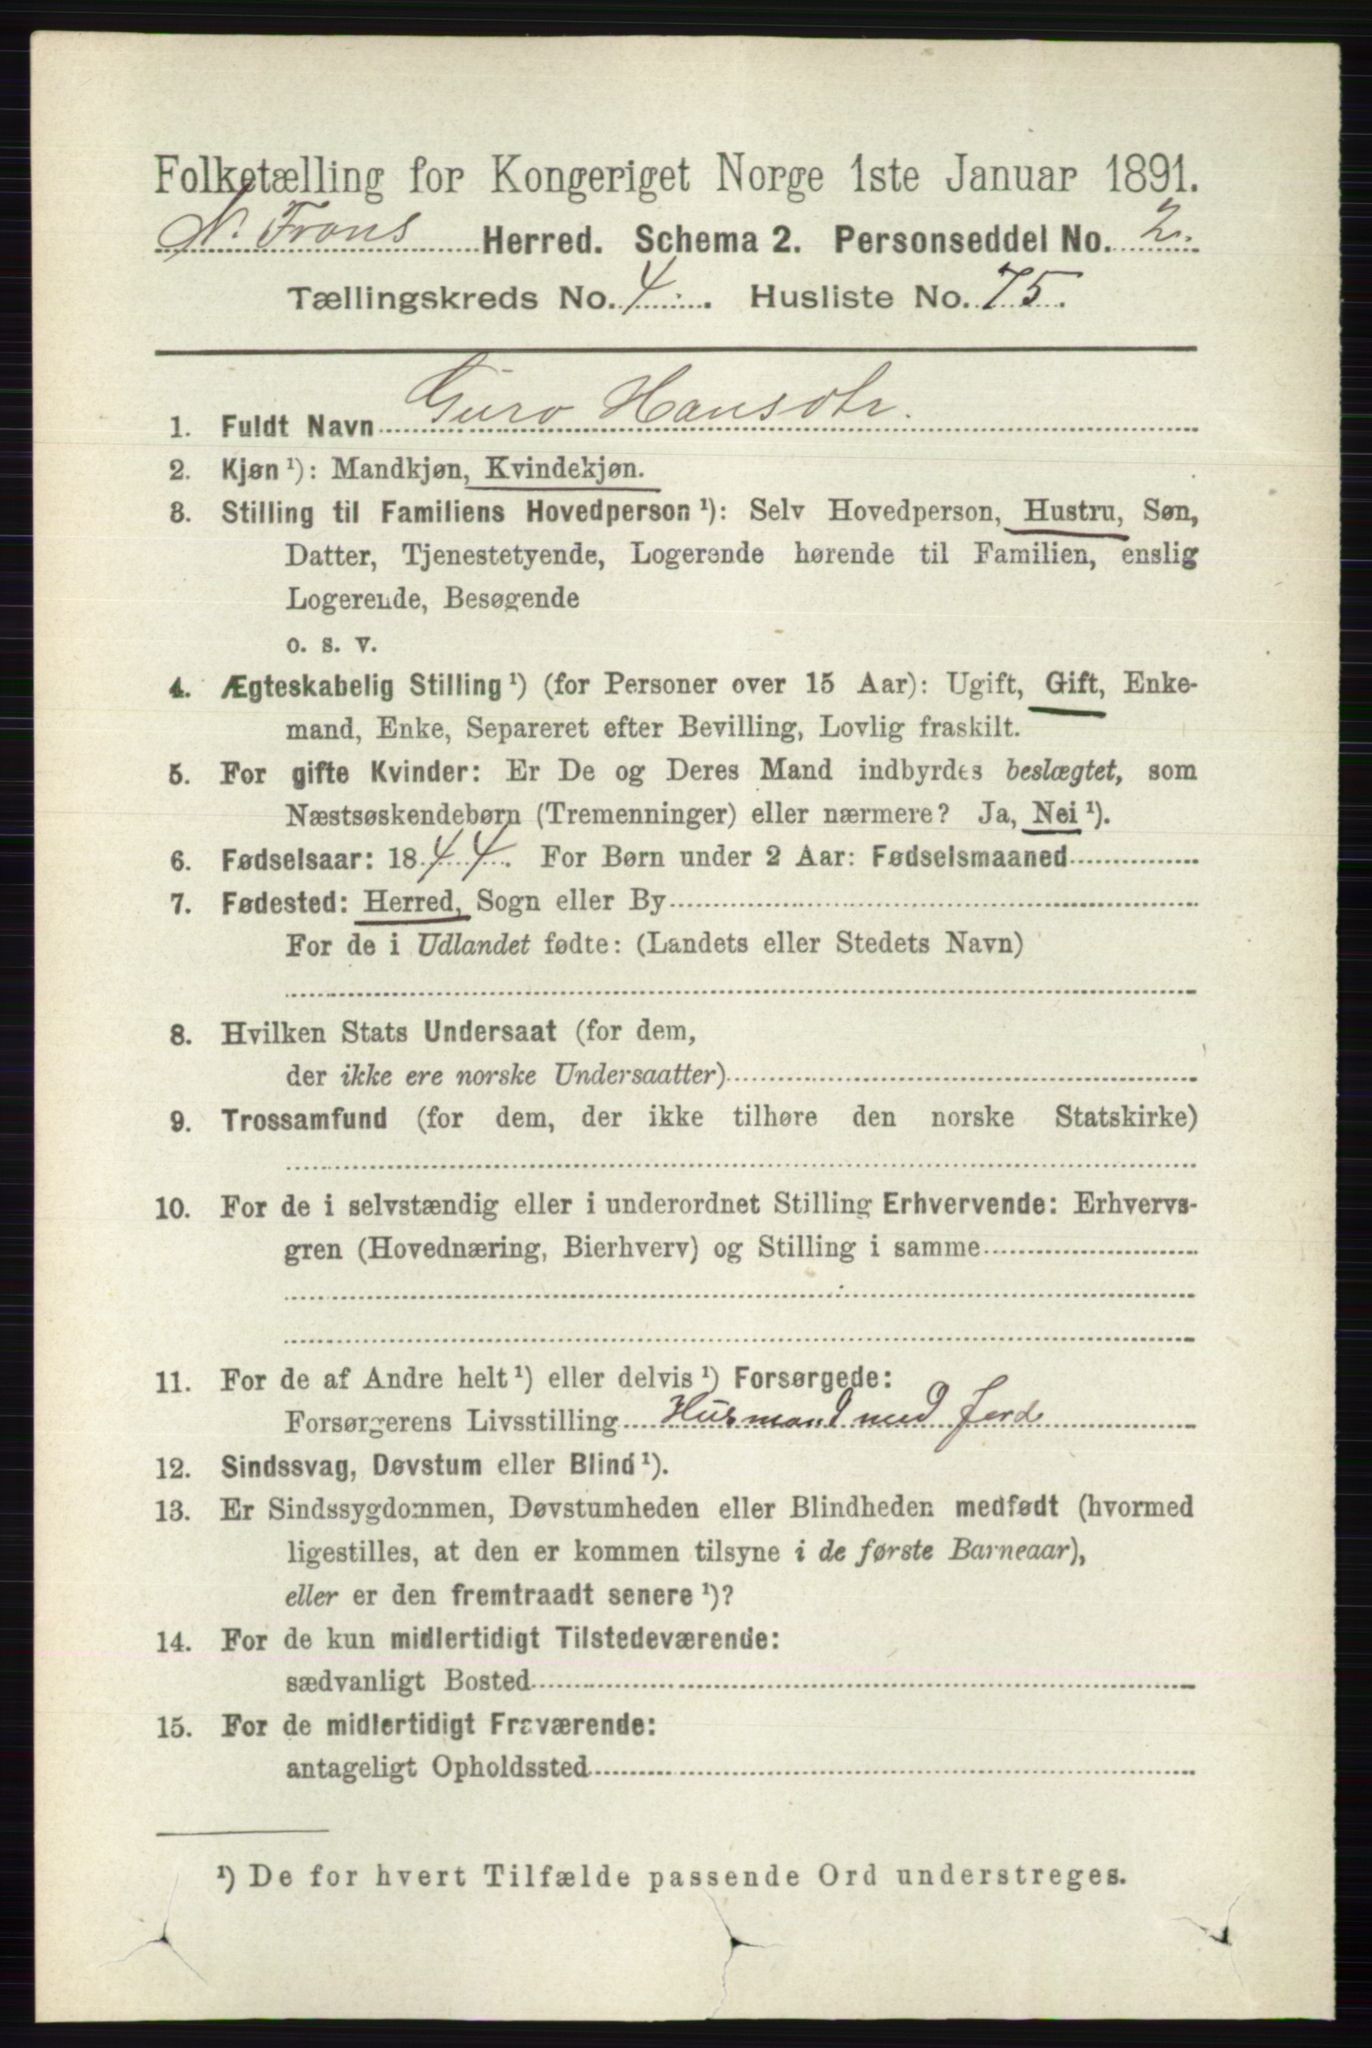 Folketælling for Kongeriget Norge 1ste Januar 1891.
N. Frons Herred. Schema 2. Personseddel No. 2.
Tællingskreds No. 4. Husliste No. 75.
1. Fuldt Navn Guro Hansdtr.
2. Kjøn ¹): Mandkjøn, Kvindekjøn.
3. Stilling til Familiens Hovedperson ¹): Selv Hovedperson, Hustru, Søn,
Datter, Tjenestetyende, Logerende hørende til Familien, enslig
Logerende, Besøgende
o. s. v.
4. Ægteskabelig Stilling ¹) (for Personer over 15 Aar): Ugift, Gift, Enke-
mand, Enke, Separeret efter Bevilling, Lovlig fraskilt.
5. For gifte Kvinder: Er De og Deres Mand indbyrdes beslægtet, som
Næstsøskendebørn (Tremenninger) eller nærmere? Ja, Nei ¹).
6. Fødselsaar: 1844. For Børn under 2 Aar: Fødselsmaaned
7. Fødested: Herred, Sogn eller By
For de i Udlandet fødte: (Landets eller Stedets Navn)
8. Hvilken Stats Undersaat (for dem,
der ikke ere norske Undersaatter)
9. Trossamfund (for dem, der ikke tilhøre den norske Statskirke)
10. For de i selvstændig eller i underordnet Stilling Erhvervende: Erhvervs-
gren (Hovednæring, Bierhverv) og Stilling i samme
11. For de af Andre helt ¹) eller delvis ¹) Forsørgede:
Forsørgerens Livsstilling Husmand med Jord
12. Sindssvag, Døvstum eller Blind ¹).
13. Er Sindssygdommen, Døvstumheden eller Blindheden medfødt (hvormed
ligestilles, at den er kommen tilsyne i de første Barneaar),
eller er den fremtraadt senere ¹)?
14. For de kun midlertidigt Tilstedeværende:
sædvanligt Bosted
15. For de midlertidigt Fraværende:
antageligt Opholdssted
¹) De for hvert Tilfælde passende Ord understreges.